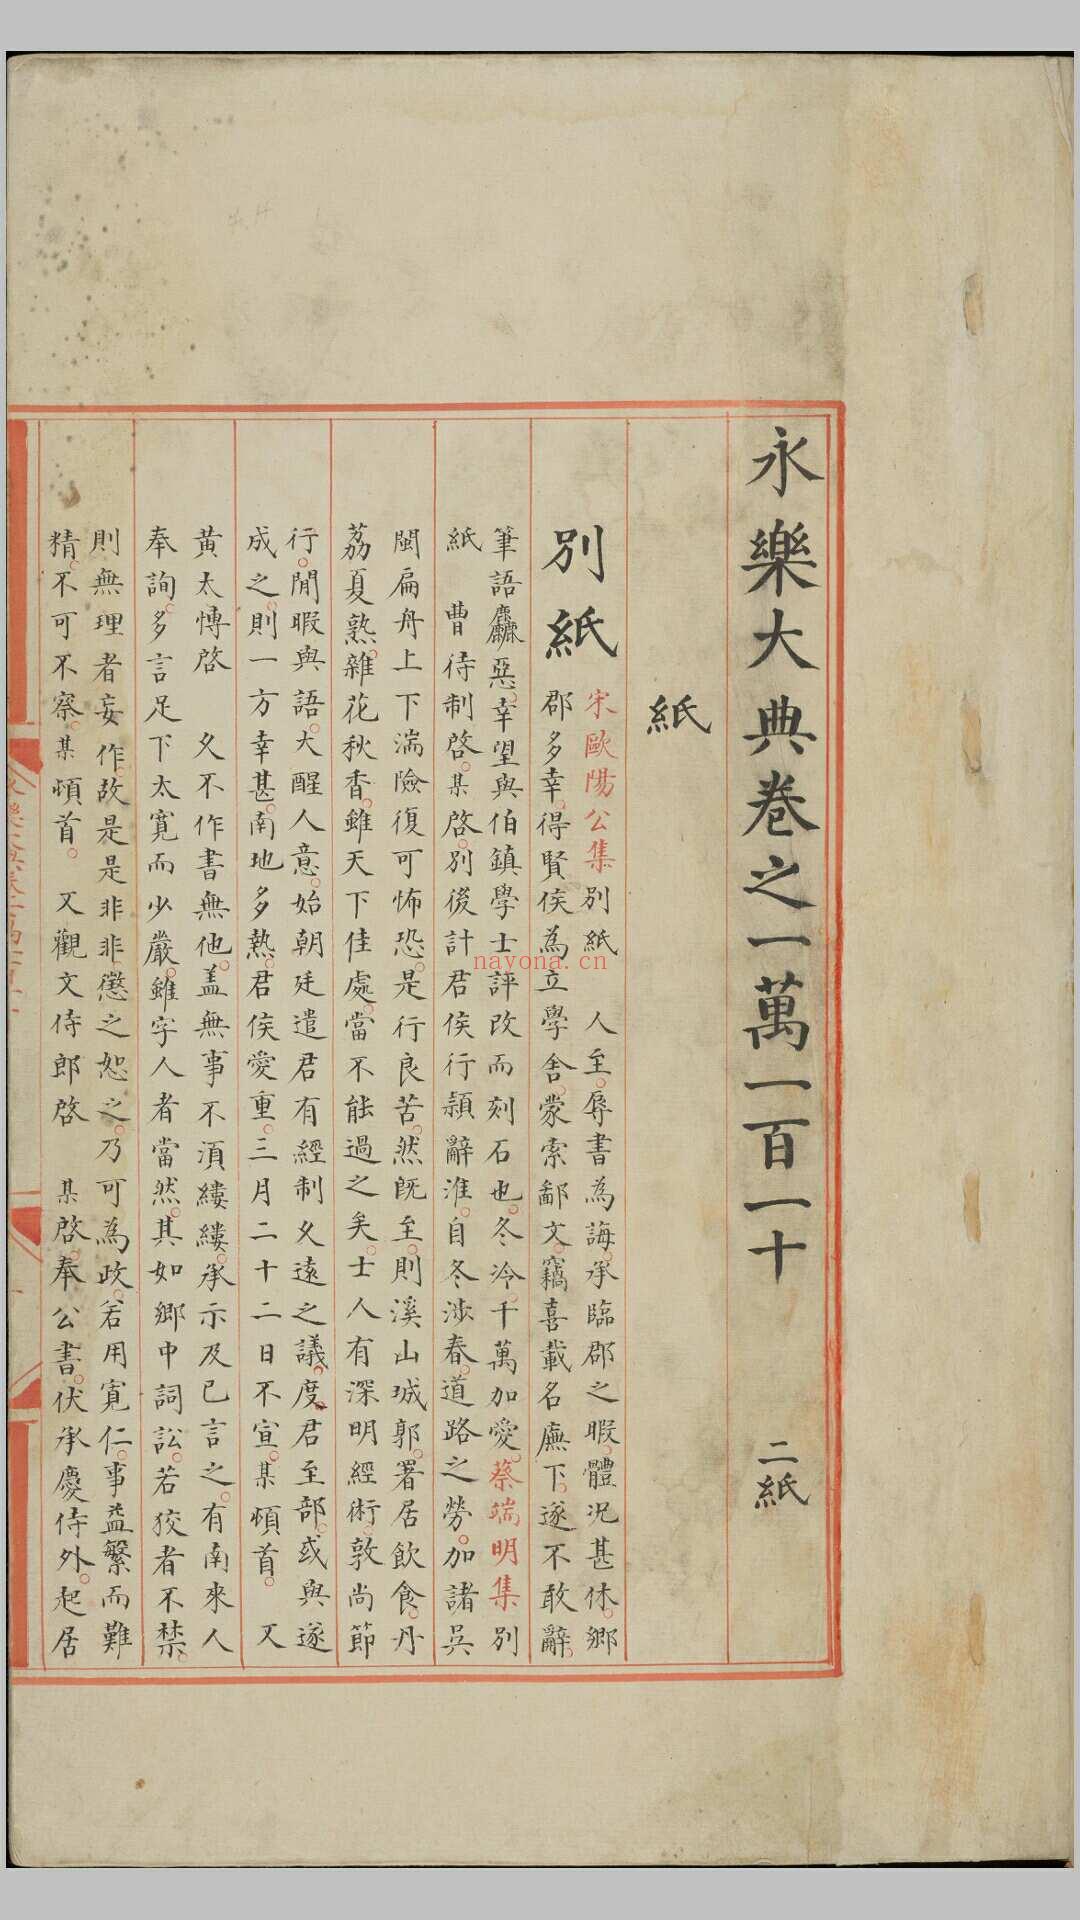 永樂大典卷之一萬一百一十 二紙
紙
別紙
宋歐陽公集別紙 人至。辱書為誨。承臨郡之暇。體況甚休。鄉
郡多幸。得賢侯為立學舍。蒙索鄙文。竊喜載名廡下。遂不敢辭。
筆語麤惡。幸望與伯鎮學士評改而刻石也。冬冷。千萬加愛。蔡端明集別
紙 曹待制啓。某啓。別後計君侯行潁辭淮。自冬涉春。道路之勞。加諸吳
閩扁舟上下湍險。復可怖恐。是行良苦。然既至。則溪山城郭。署居飲食。丹
荔夏熟。雜花秋香。雖天下佳處。當不能過之矣。士人有深明經術。敦尚節
行。閒暇與語。大醒人意。始朝廷遣君有經制久遠之議。度君至部。或與遂
成之。則一方幸甚。南地多熱。君侯愛重。三月二十二日不宣。某頓首。 又
黃太博啓 久不作書無他。蓋無事不須縷縷。承示及已言之。有南來人
奉詢。多言足下太寬而少嚴。雖字人者當然。其如鄉中詞訟。若狡者不禁。
則無理者妄作。故是是非非。懲之恕之。乃可為政。若用寬仁。事益繁而難
精。不可不察。某頓首。 又觀文侍郎啓 某啓。奉公書。伏承慶侍外。起居
nayona.cn